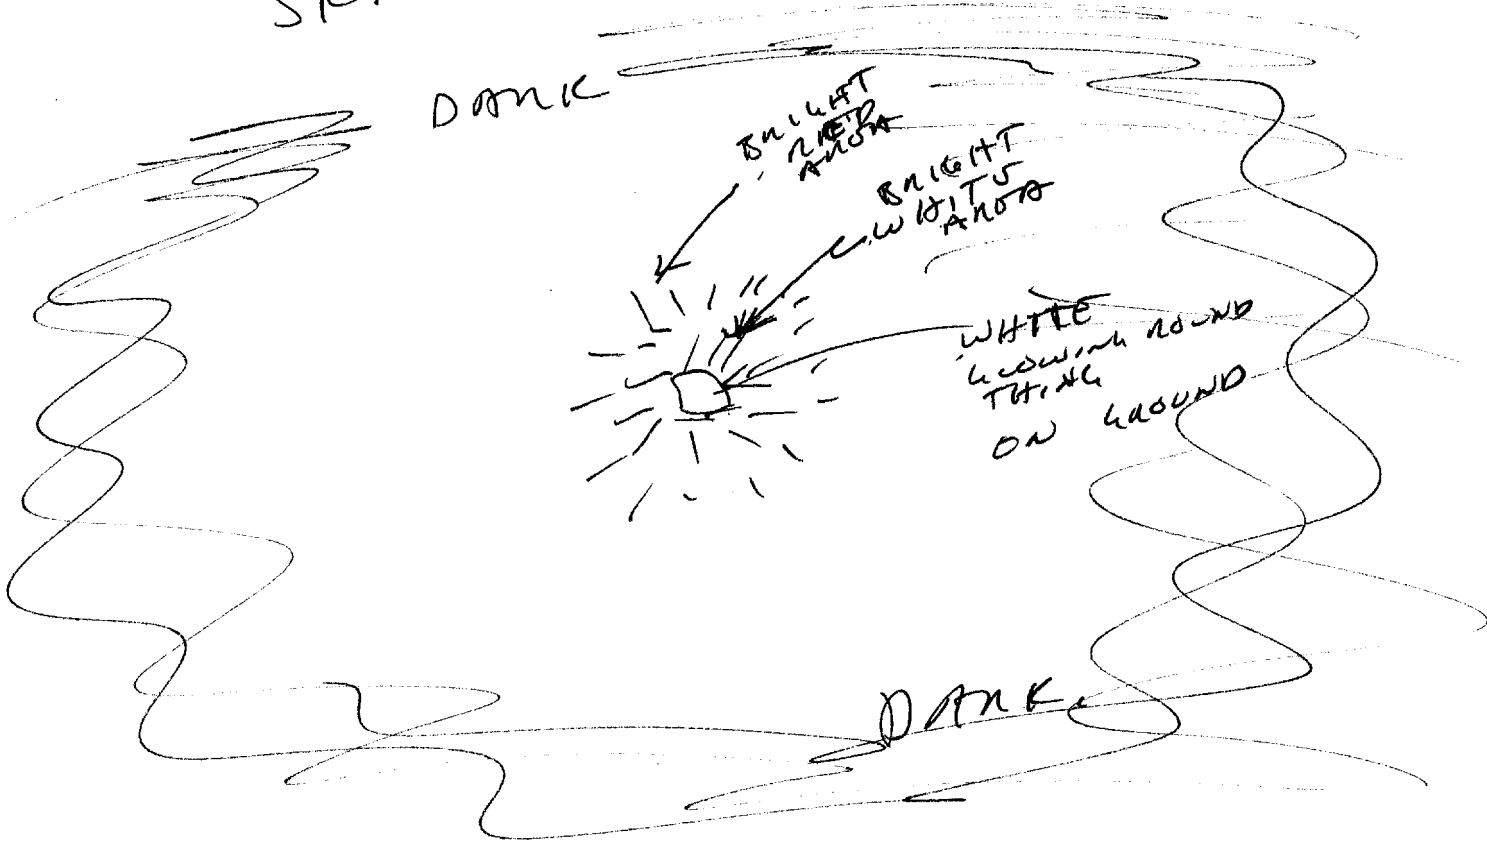 DARK
BRIGHT
RED
AREA
BRIGHT
WHITE
AREA
WHITE
GLOWING ROUND
THING
ON GROUND
DARK.